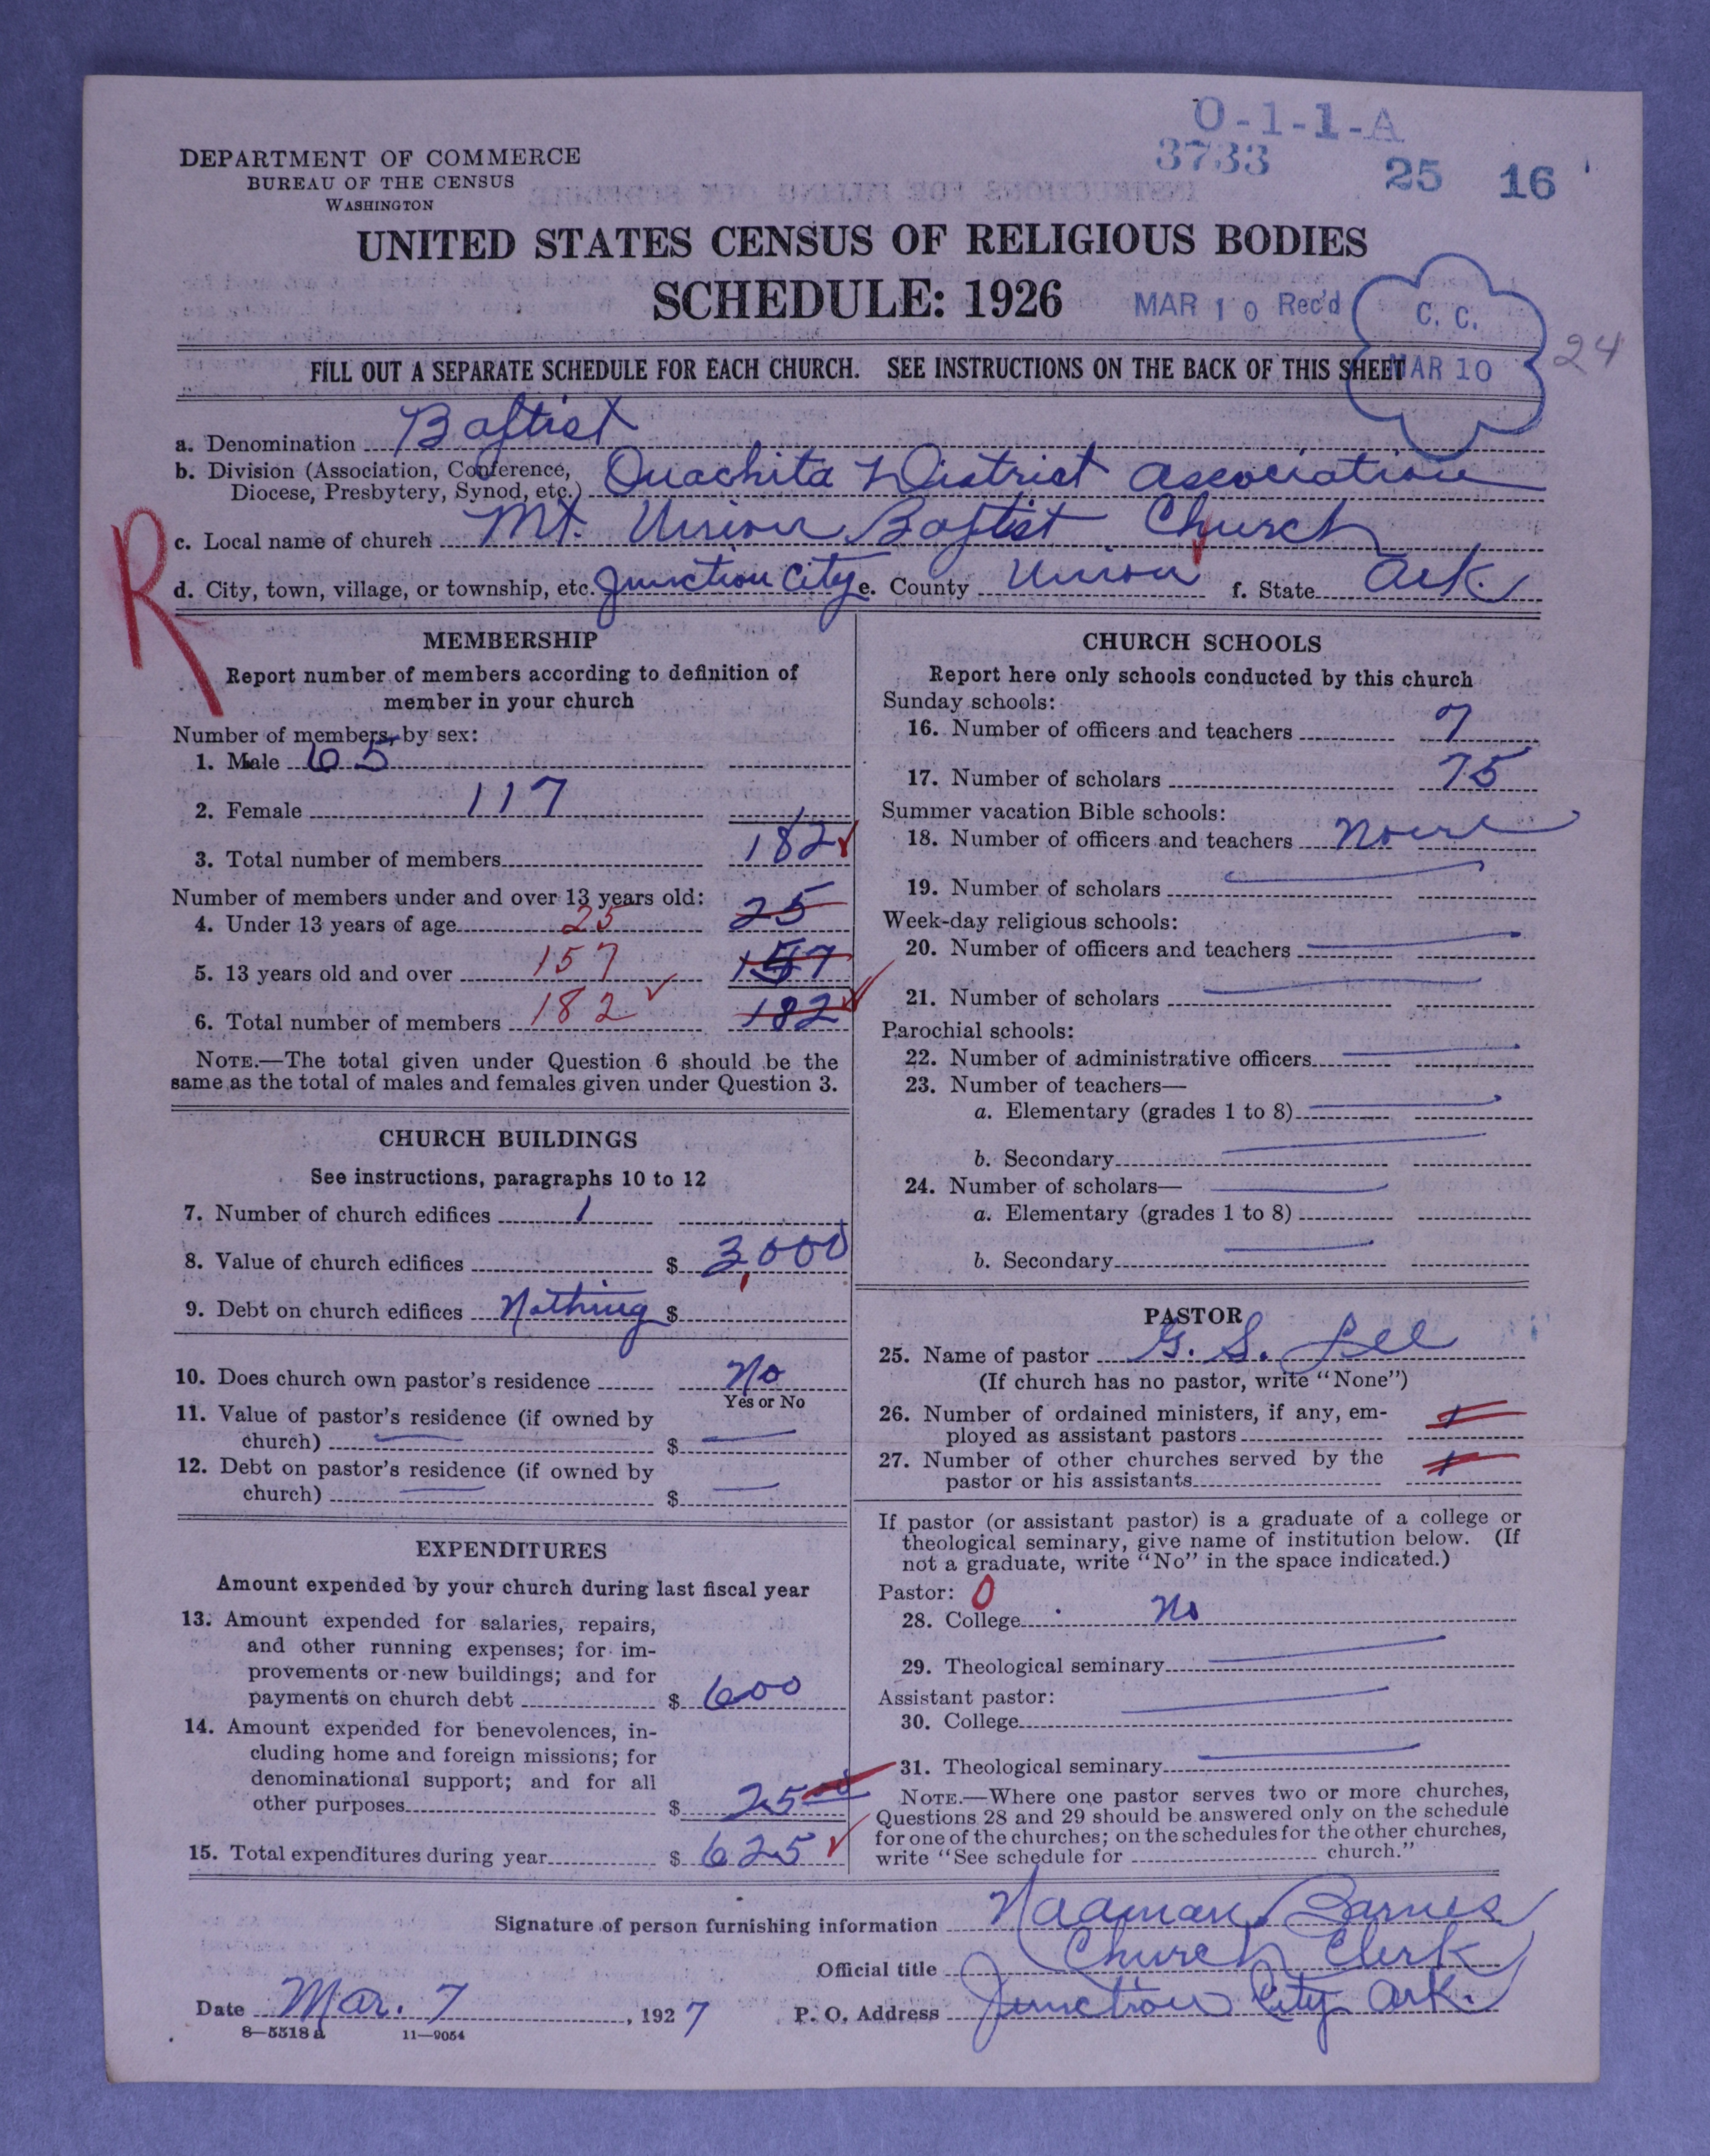 O-1-1-A
3733
25 16
DEPARTMENT OF COMMERCE
BUREAU OF THE CENSUS
WASHINGTON
UNITED STATES CENSUS OF RELIGIOUS BODIES
SCHEDULE: 1926
MAR 10 Rec'd
C. C.
MAR 10
24
FILL OUT A SEPARATE SCHEDULE FOR EACH CHURCH. SEE INSTRUCTIONS ON THE BACK OF THIS SHEET
a. Denomination Baptist
b. Division (Association, Conference,
Diocese, Presbytery, Synod, etc.) Ouachita District Association
R
c. Local name of church Mt. Union Baptist Church
d. City, town, village, or township, etc. Junction City e. County Union f. State Ark.
MEMBERSHIP
Report number of members according to definition of
member in your church
Number of members, by sex:
1. Male 65
2. Female 117
3. Total number of members 182
Number of members under and over 13 years old:
4. Under 13 years of age 25 25
5. 13 years old and over 157 157
6. Total number of members 182 182
NOTE.—The total given under Question 6 should be the
same as the total of males and females given under Question 3.
CHURCH BUILDINGS
See instructions, paragraphs 10 to 12
7. Number of church edifices 1
8. Value of church edifices $ 3,000
9. Debt on church edifices Nothing $
10. Does church own pastor's residence No
Yes or No
11. Value of pastor's residence (if owned by
church) $
12. Debt on pastor's residence (if owned by
church) $
EXPENDITURES
Amount expended by your church during last fiscal year
13. Amount expended for salaries, repairs,
and other running expenses; for im-
provements or new buildings; and for
payments on church debt $ 600
14. Amount expended for benevolences, in-
cluding home and foreign missions; for
denominational support; and for all
other purposes $ 25 00
15. Total expenditures during year $ 625
CHURCH SCHOOLS
Report here only schools conducted by this church
Sunday schools:
16. Number of officers and teachers 7
17. Number of scholars 75
Summer vacation Bible schools:
18. Number of officers and teachers None
19. Number of scholars
Week-day religious schools:
20. Number of officers and teachers
21. Number of scholars
Parochial schools:
22. Number of administrative officers
23. Number of teachers—
a. Elementary (grades 1 to 8)
b. Secondary
24. Number of scholars—
a. Elementary (grades 1 to 8)
b. Secondary
PASTOR
25. Name of pastor G. S. Lee
(If church has no pastor, write "None")
26. Number of ordained ministers, if any, em-
ployed as assistant pastors 1
27. Number of other churches served by the
pastor or his assistants 1
If pastor (or assistant pastor) is a graduate of a college or
theological seminary, give name of institution below. (If
not a graduate, write "No" in the space indicated.)
Pastor: 0
28. College No
29. Theological seminary
Assistant pastor:
30. College
31. Theological seminary
NOTE.—Where one pastor serves two or more churches,
Questions 28 and 29 should be answered only on the schedule
for one of the churches; on the schedules for the other churches,
write "See schedule for church."
Signature of person furnishing information Naaman Barnes
Official title Church Clerk
Date Mar. 7, 1927 P. O. Address Junction City Ark.
8—5518 a 11—9054